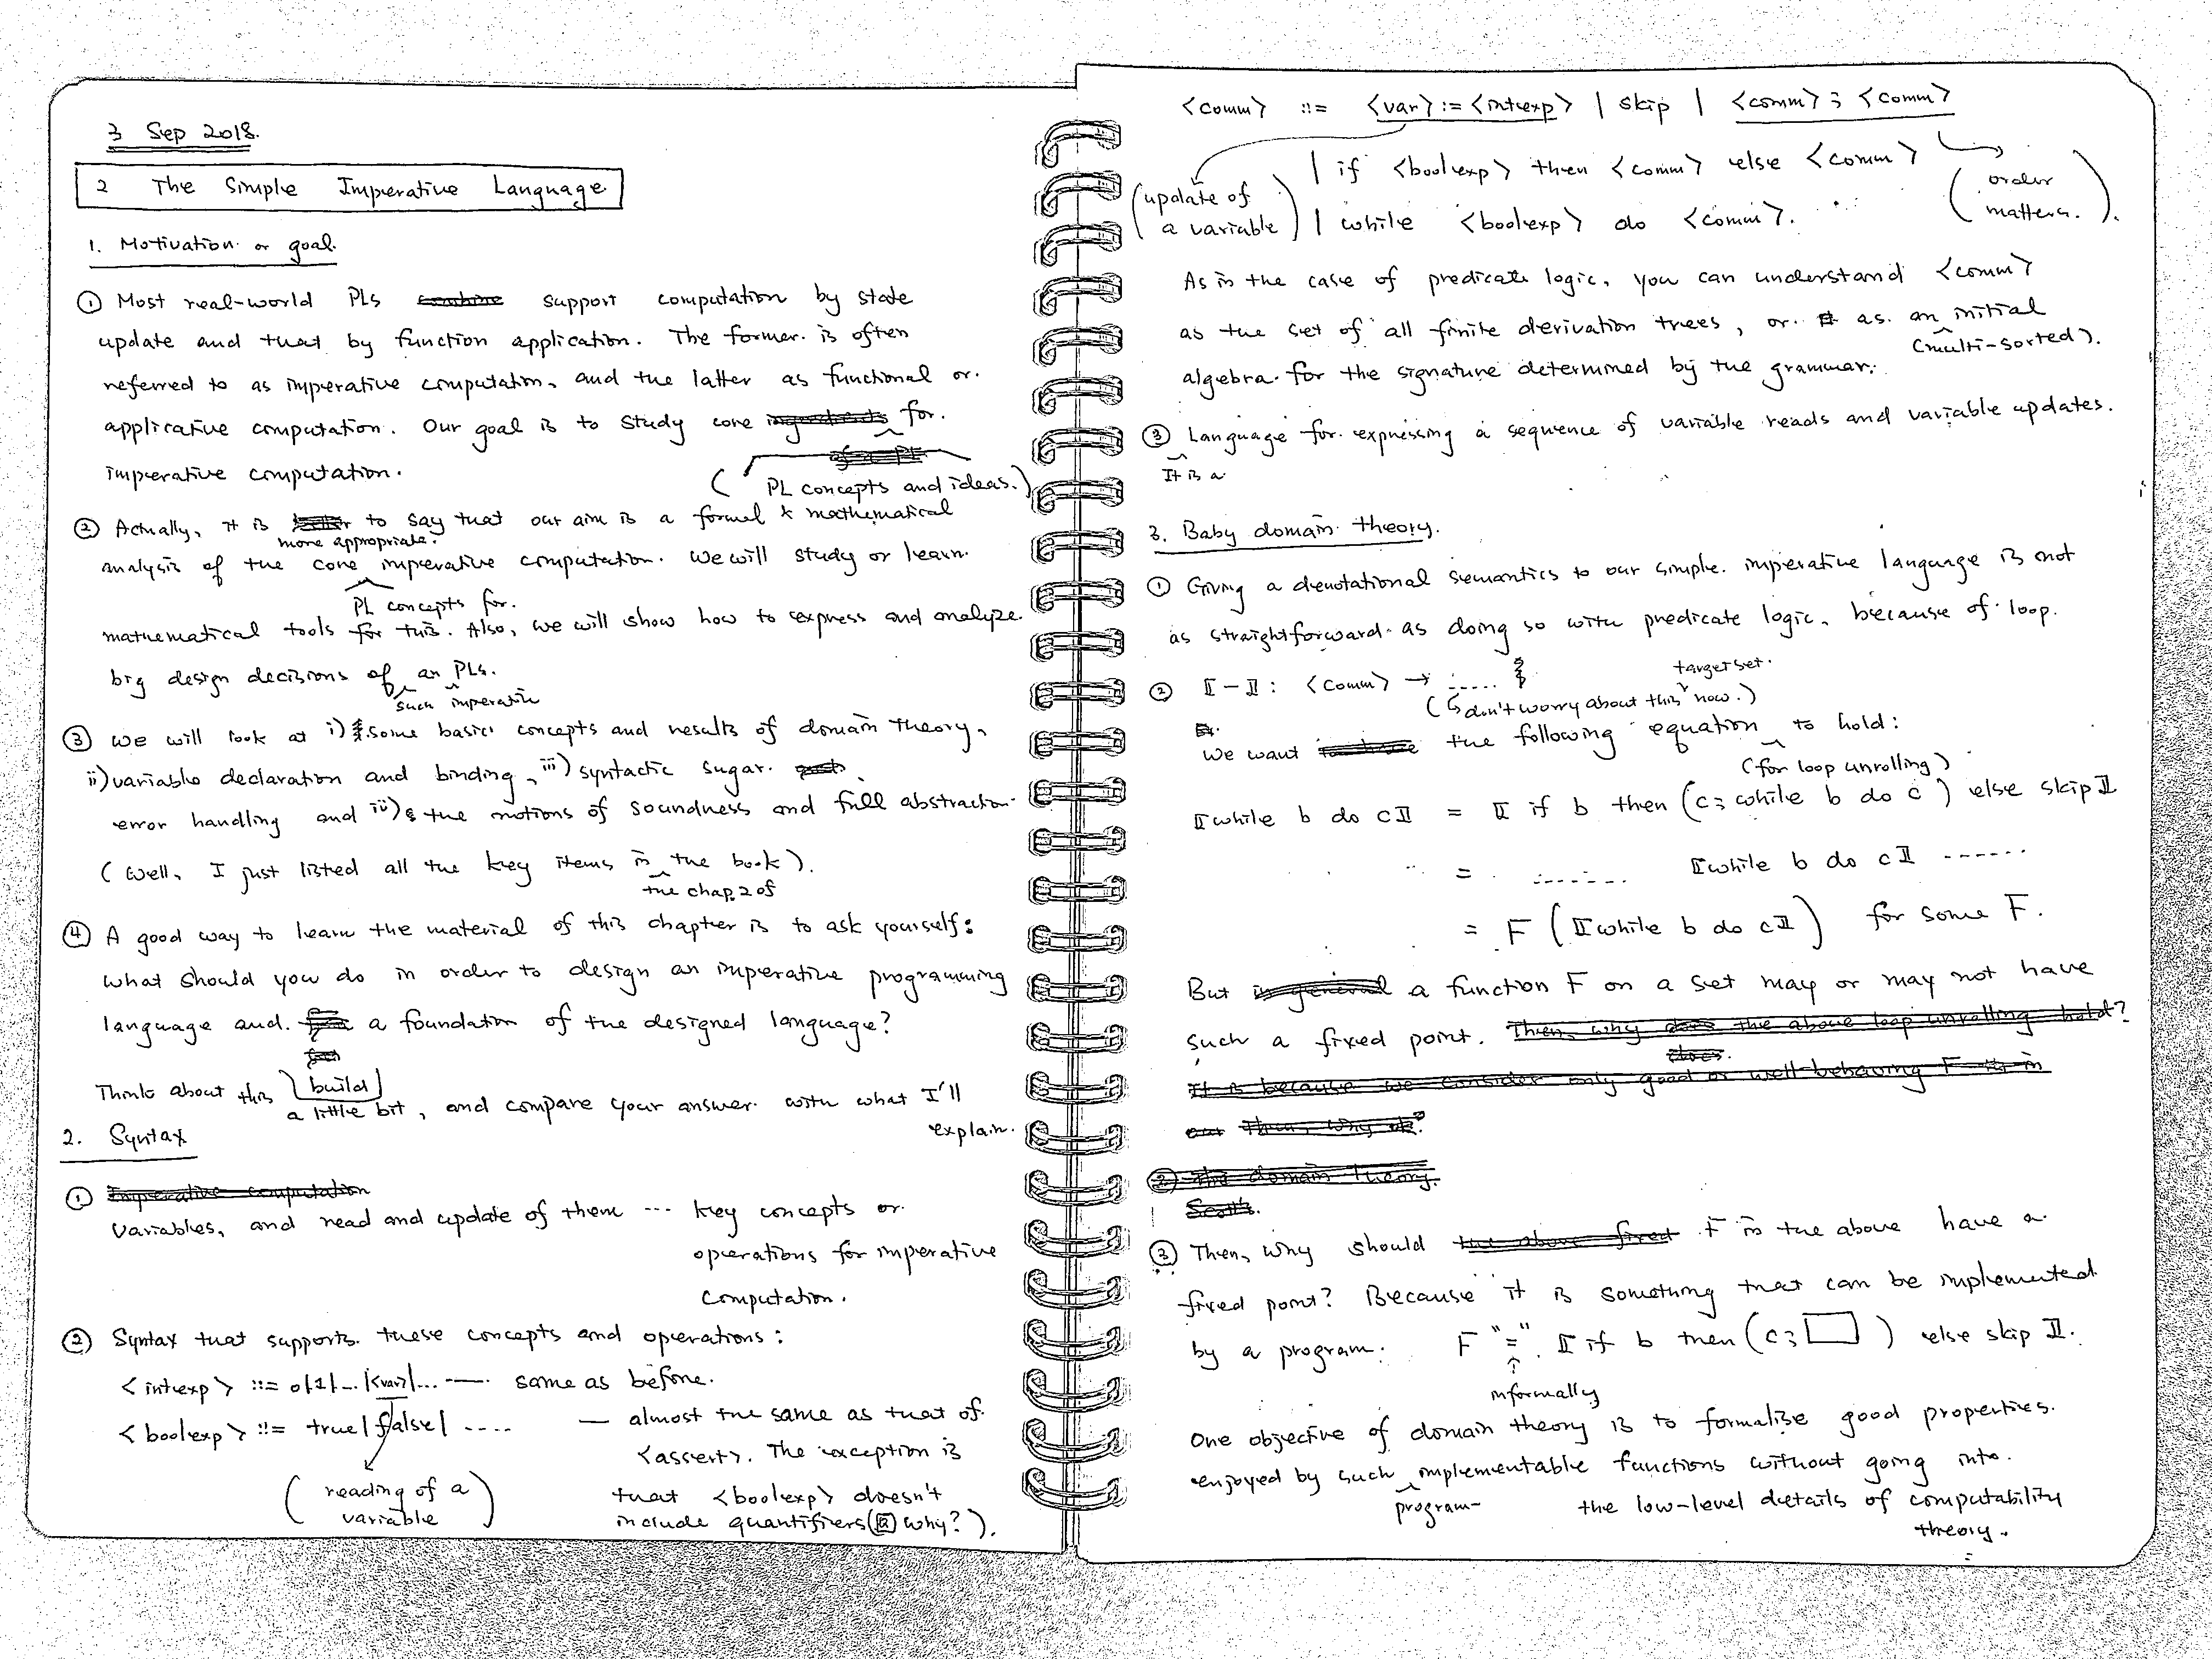 3 Sep 2018.
2 The Simple Imperative Language
1. Motivation or goal.
① Most real-world PLs support computation by state
update and that by function application. The former is often
referred to as imperative computation, and the latter as functional or
applicative computation. Our goal is to study core for
(PL concepts and ideas.)
imperative computation.
② Actually, it is to say that our aim is a formal & mathematical
more appropriate
analysis of the core imperative computation. We will study or learn
PL concepts for
mathematical tools for this. Also, we will show how to express and analyze
big design decisions of an PLs.
such imperative
③ We will look at i) some basic concepts and results of domain theory,
ii) variable declaration and binding, iii) syntactic sugar.
error handling and iv) the notions of soundness and full abstraction.
(Well, I just listed all the key items in the book).
the chap. 2 of
④ A good way to learn the material of this chapter is to ask yourself:
what should you do in order to design an imperative programming
language and a foundation of the designed language?
build
Think about this a little bit, and compare your answer with what I'll
explain.
2. Syntax
① Imperative computation
Variables, and read and update of them --- key concepts or
operations for imperative
computation.
② Syntax that supports these concepts and operations:
<intexp> ::= 0|1|...|<var>|... —— same as before.
<boolexp> ::= true|false| .... — almost the same as that of
<assert>. The exception is
that <boolexp> doesn't
include quantifiers ( why?).
(reading of a
variable)
<comm> ::= <var>:=<intexp> | skip | <comm> ; <comm>
| if <boolexp> then <comm> else <comm>
(order
matters.)
(update of
a variable)
| while <boolexp> do <comm>.
As in the case of predicate logic, you can understand <comm>
as the set of all finite derivation trees, or as an initial
(multi-sorted).
algebra for the signature determined by the grammar.
③ Language for expressing a sequence of variable reads and variable updates.
It is a
3. Baby domain theory.
① Giving a denotational semantics to our simple imperative language is not
as straightforward as doing so with predicate logic, because of loop.
② ⟦-⟧ : <comm> → ......
target set.
(↳ don't worry about this now.)
We want the following equation to hold:
(for loop unrolling)
⟦while b do c⟧ = ⟦if b then (c; while b do c) else skip⟧
= ....... ⟦while b do c⟧ ------
= F (⟦while b do c⟧) for some F.
But in general a function F on a set may or may not have
such a fixed point. Then, why does the above loop unrolling hold?
does
It is because we consider only good or well-behaving F in
Then, why
② The domain theory.
Scott's.
③ Then, why should the above fixed F in the above have a
fixed point? Because it is something that can be implemented
by a program. F "=" ⟦if b then (c; □) else skip⟧.
↑
informally
One objective of domain theory is to formalise good properties
enjoyed by such implementable functions without going into
program-
the low-level details of computability
theory.